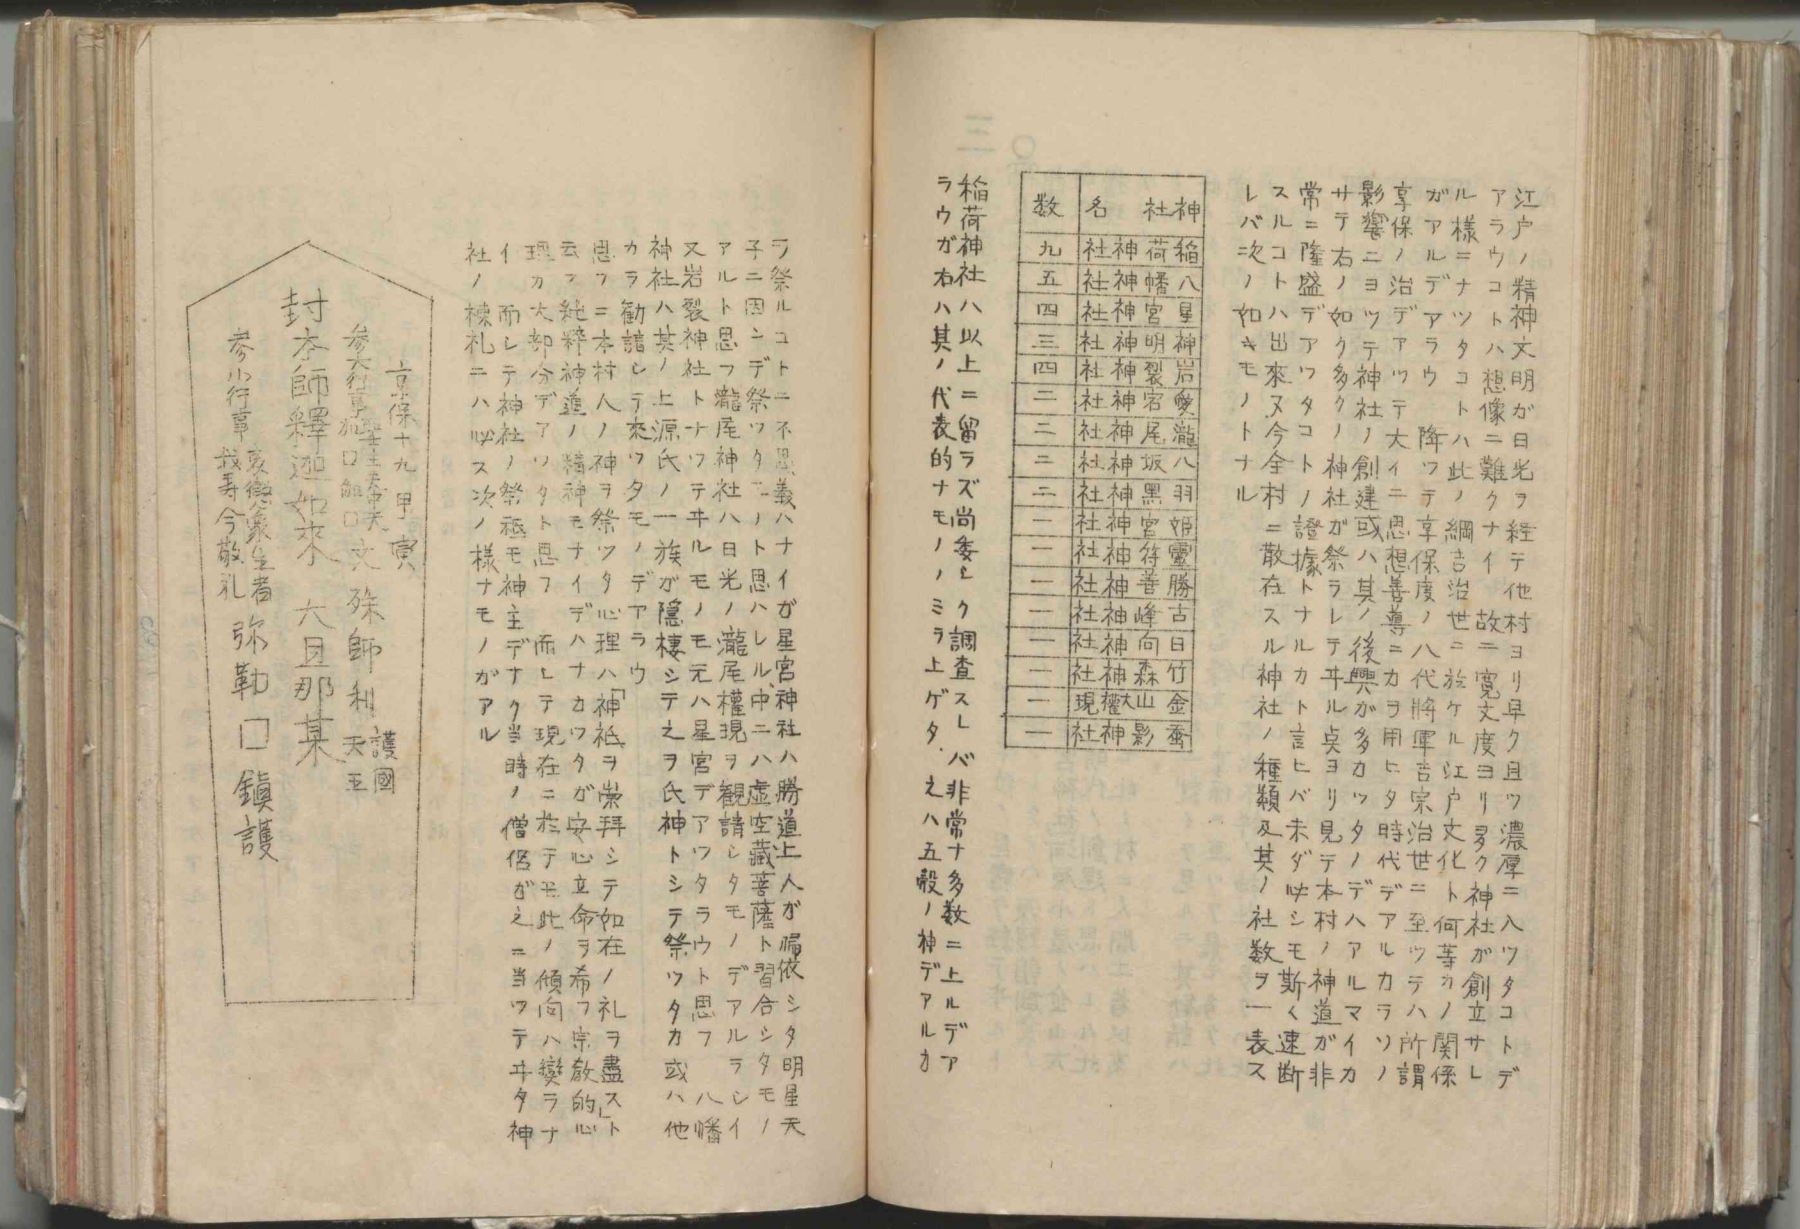 江戸ノ精神文明ガ日光ヲ経テ他村ヨリ早ク且ツ濃厚ニ入ツタコトデ
アラウコトハ想像ニ難クナイ 故ニ寛文度ヨリ多ク神社ガ創立サレ
ル様ニナツタコトハ此ノ綱吉治世ニ於ケル江戸文化ト何等カノ関係
ガアルデアラウ 降ツテ享保度ノ八代将軍吉宗治世ニ至ツテハ所謂
享保ノ治デアツテ大イニ思想善導ニカヲ用ヒタ時代デアルカラソノ
影響ニヨツテ神社ノ創建或ハ其ノ後興ガ多カツタノデハアルマイカ
サテ右ノ如ク多クノ神社ガ祭ラレテヰル点ヨリ見テ本村ノ神道ガ非
常ニ隆盛デアツタコトノ證據トナルカト言ヒバ未ダ必シモ斯く速断
スルコトハ出來ヌ今全村ニ散在スル神社ノ種類及其ノ社数ヲ一表ス
レバ次ノ如キモノトナル
神社名 数
稲荷神社 九
八幡神社 五
星宮神社 四
神明神社 三
岩裂神社 四
愛宕神社 二
瀧尾神社 二
八坂神社 二
羽黒神社 二
姫宮神社 一
靈符神社 一
勝善神社 一
古峰神社 一
日向神社 一
竹森神社 一
金山大權現 一
蚕影神社 一
稲荷神社ハ以上ニ留ラズ尚委シク調査スレバ非常ナ多数ニ上ルデア
ラウガ右ハ其ノ代表的ナモノノミヲ上ゲタ、之ハ五穀ノ神デアルカ
ラ祭ルコトニ不思義ハナイガ星宮神社ハ勝道上人ガ帰依シタ明星天
子ニ因ンデ祭ツタモノト思ハレル、中ニハ虚空蔵菩薩ト習合シタモノ
アルト思フ瀧尾神社ハ日光ノ瀧尾權現ヲ観請シタモノデアルラシイ
又岩裂神社トナツテヰルモノモ元ハ星宮デアツタラウト思フ 八幡
神社ハ其ノ上源氏ノ一族ガ隠棲シテ之ヲ氏神トシテ祭ツタカ或ハ他
カラ勧請シテ來ツタモノデアラウ
思フニ本村人ノ神ヲ祭ツタ心理ハ「神祗ヲ崇拜シテ如在ノ礼ヲ盡ス」ト
云フ純粹神道ノ精神モナイデハナカツタガ安心立命ヲ希フ宗教的心
理ガ大部分デアツタト思フ 而シテ現在ニ於テモ此ノ傾向ハ變ラナ
イ 而シテ神社ノ祭祗モ神主デナク当時ノ僧侶ガ之ニ当ツテヰタ神
社ノ棟札ニハ必ス次ノ様ナモノガアル
京保十九甲寅
参大行事 文殊師利 護國天王
封本師釋迦如來 大旦那某
参小行事 哀愍衆生者 我等今敬礼 弥勒口鎮護